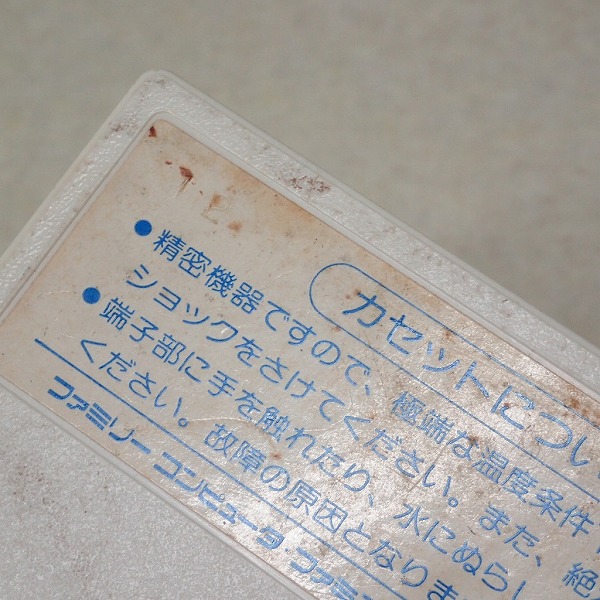 カセットについ
●精密機器ですので、極端な温度条件
ショックをさけてください。また、絶
●端子部に手を触れたり、水にぬらし
ください。故障の原因となりま
ファミリー コンピュータ ファミ